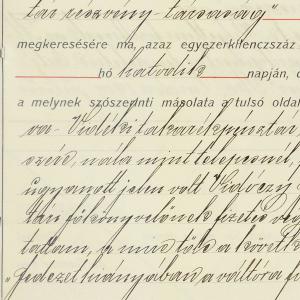 tár részvény-társaság"
megkeresésére ma, azaz egyezerkilenczszáz
hó hatodik napján, d
a melynek szószerinti másolata a tulsó oldal
va- Vidéki takarékpénztár
szése, nála mint telepesnél,
ugyanott jelen volt Vidóczy
tán főkönyvelőnek fizetés vé
tattam, s mire tőle a követk
„fedezet hiányában a váltóra fi